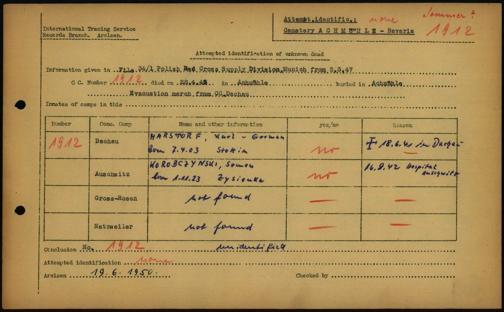 International Tracing Service
Records Branch. Arolsen.
Attempt.identific.: none
Sommer?
Cemetery ACHMÜHLE - Bavaria 1912
Attempted identification of unknown dead
Information given in File 34/1 Polish Red Cross Supply Division Munich from 8.8.47
CC. Number 1912 died on 22.4.45 in Achmühle buried in Achmühle
Evacuation march from CC Dachau
Inmates of camps in this
Number Conc. Camp Name and other information yes/no Reason
1912 Dachau HARSTORF, Karl - German
born 7.4.03 no 18.6.41 in Dachau
Auschwitz KOROBCZYNSKI,
born 1.11.23 no 16.9.42 Hospital Auschwitz
Gross-Rosen not found —
Natzweiler not found —
Conclusion No. 1912 unidentified
Attempted identification
Arolsen 19.6.1950. Checked by